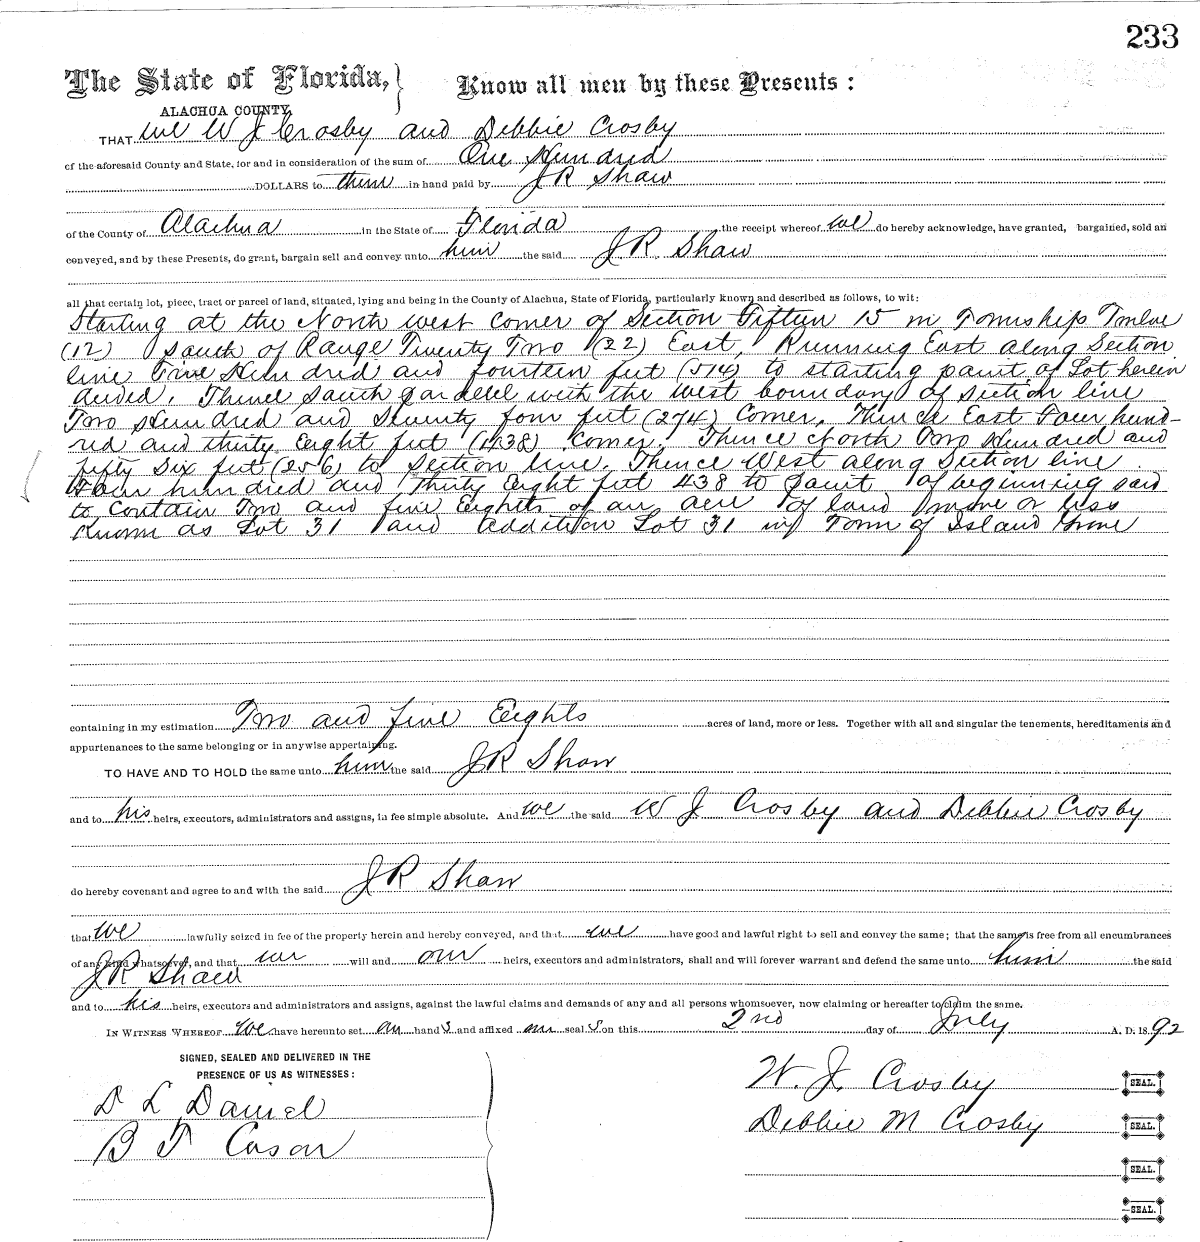 233
The State of Florida,
Know all men by these Presents:
ALACHUA COUNTY.
THAT we W J Crosby and Debbie Crosby
of the aforesaid County and State, for and in consideration of the sum of One Hundred
DOLLARS to them in hand paid by J R Shaw
of the County of Alachua in the State of Florida the receipt whereof we do hereby acknowledge, have granted, bargained, sold an
conveyed, and by these Presents, do grant, bargain sell and convey unto him the said J. R. Shaw
all that certain lot, piece, tract or parcel of land, situated, lying and being in the County of Alachua, State of Florida, particularly known and described as follows, to wit:
Starting at the North west Corner of Section Fifteen 15 in Township Twelve
(12) South of Range Twenty Two (22) East, Running East along Section
line Five Hundred and fourteen feet (514) to starting point of Lot herein
deeded. Thence South parallel with the west boundary of section line
Two Hundred and Seventy four feet (274) Corner, Thence East Four hund-
red and thirty Eight feet (438) Corner. Thence North Two Hundred and
fifty Six feet (256) to Section line, Thence West along Section line
Four hundred and thirty Eight feet 438 to point of beginning said
to contain Two and five Eights of an acre of land more or less
Known as Lot 31 and addition Lot 31 in Town of Island Grove
containing in my estimation Two and five Eights acres of land, more or less. Together with all and singular the tenements, hereditaments and
appurtenances to the same belonging or in anywise appertaining.
TO HAVE AND TO HOLD the same unto him the said J R Shaw
and to his heirs, executors, administrators and assigns, in fee simple absolute. And we the said W J Crosby and Debbie Crosby
do hereby covenant and agree to and with the said J R Shaw
that we lawfully seized in fee of the property herein and hereby conveyed, and that we have good and lawful right to sell and convey the same; that the same is free from all encumbrances
of any kind whatsoever, and that we will and our heirs, executors and administrators, shall and will forever warrant and defend the same unto him the said
J R Shaw
and to his heirs, executors and administrators and assigns, against the lawful claims and demands of any and all persons whomsoever, now claiming or hereafter to claim the same.
IN WITNESS WHEREOF we have hereunto set our hand s and affixed our seal s on this 2nd day of July A. D. 18 92
SIGNED, SEALED AND DELIVERED IN THE
PRESENCE OF US AS WITNESSES:
W. J. Crosby SEAL.
D L Daniel
Debbie M Crosby SEAL.
B T Cason
SEAL.
SEAL.